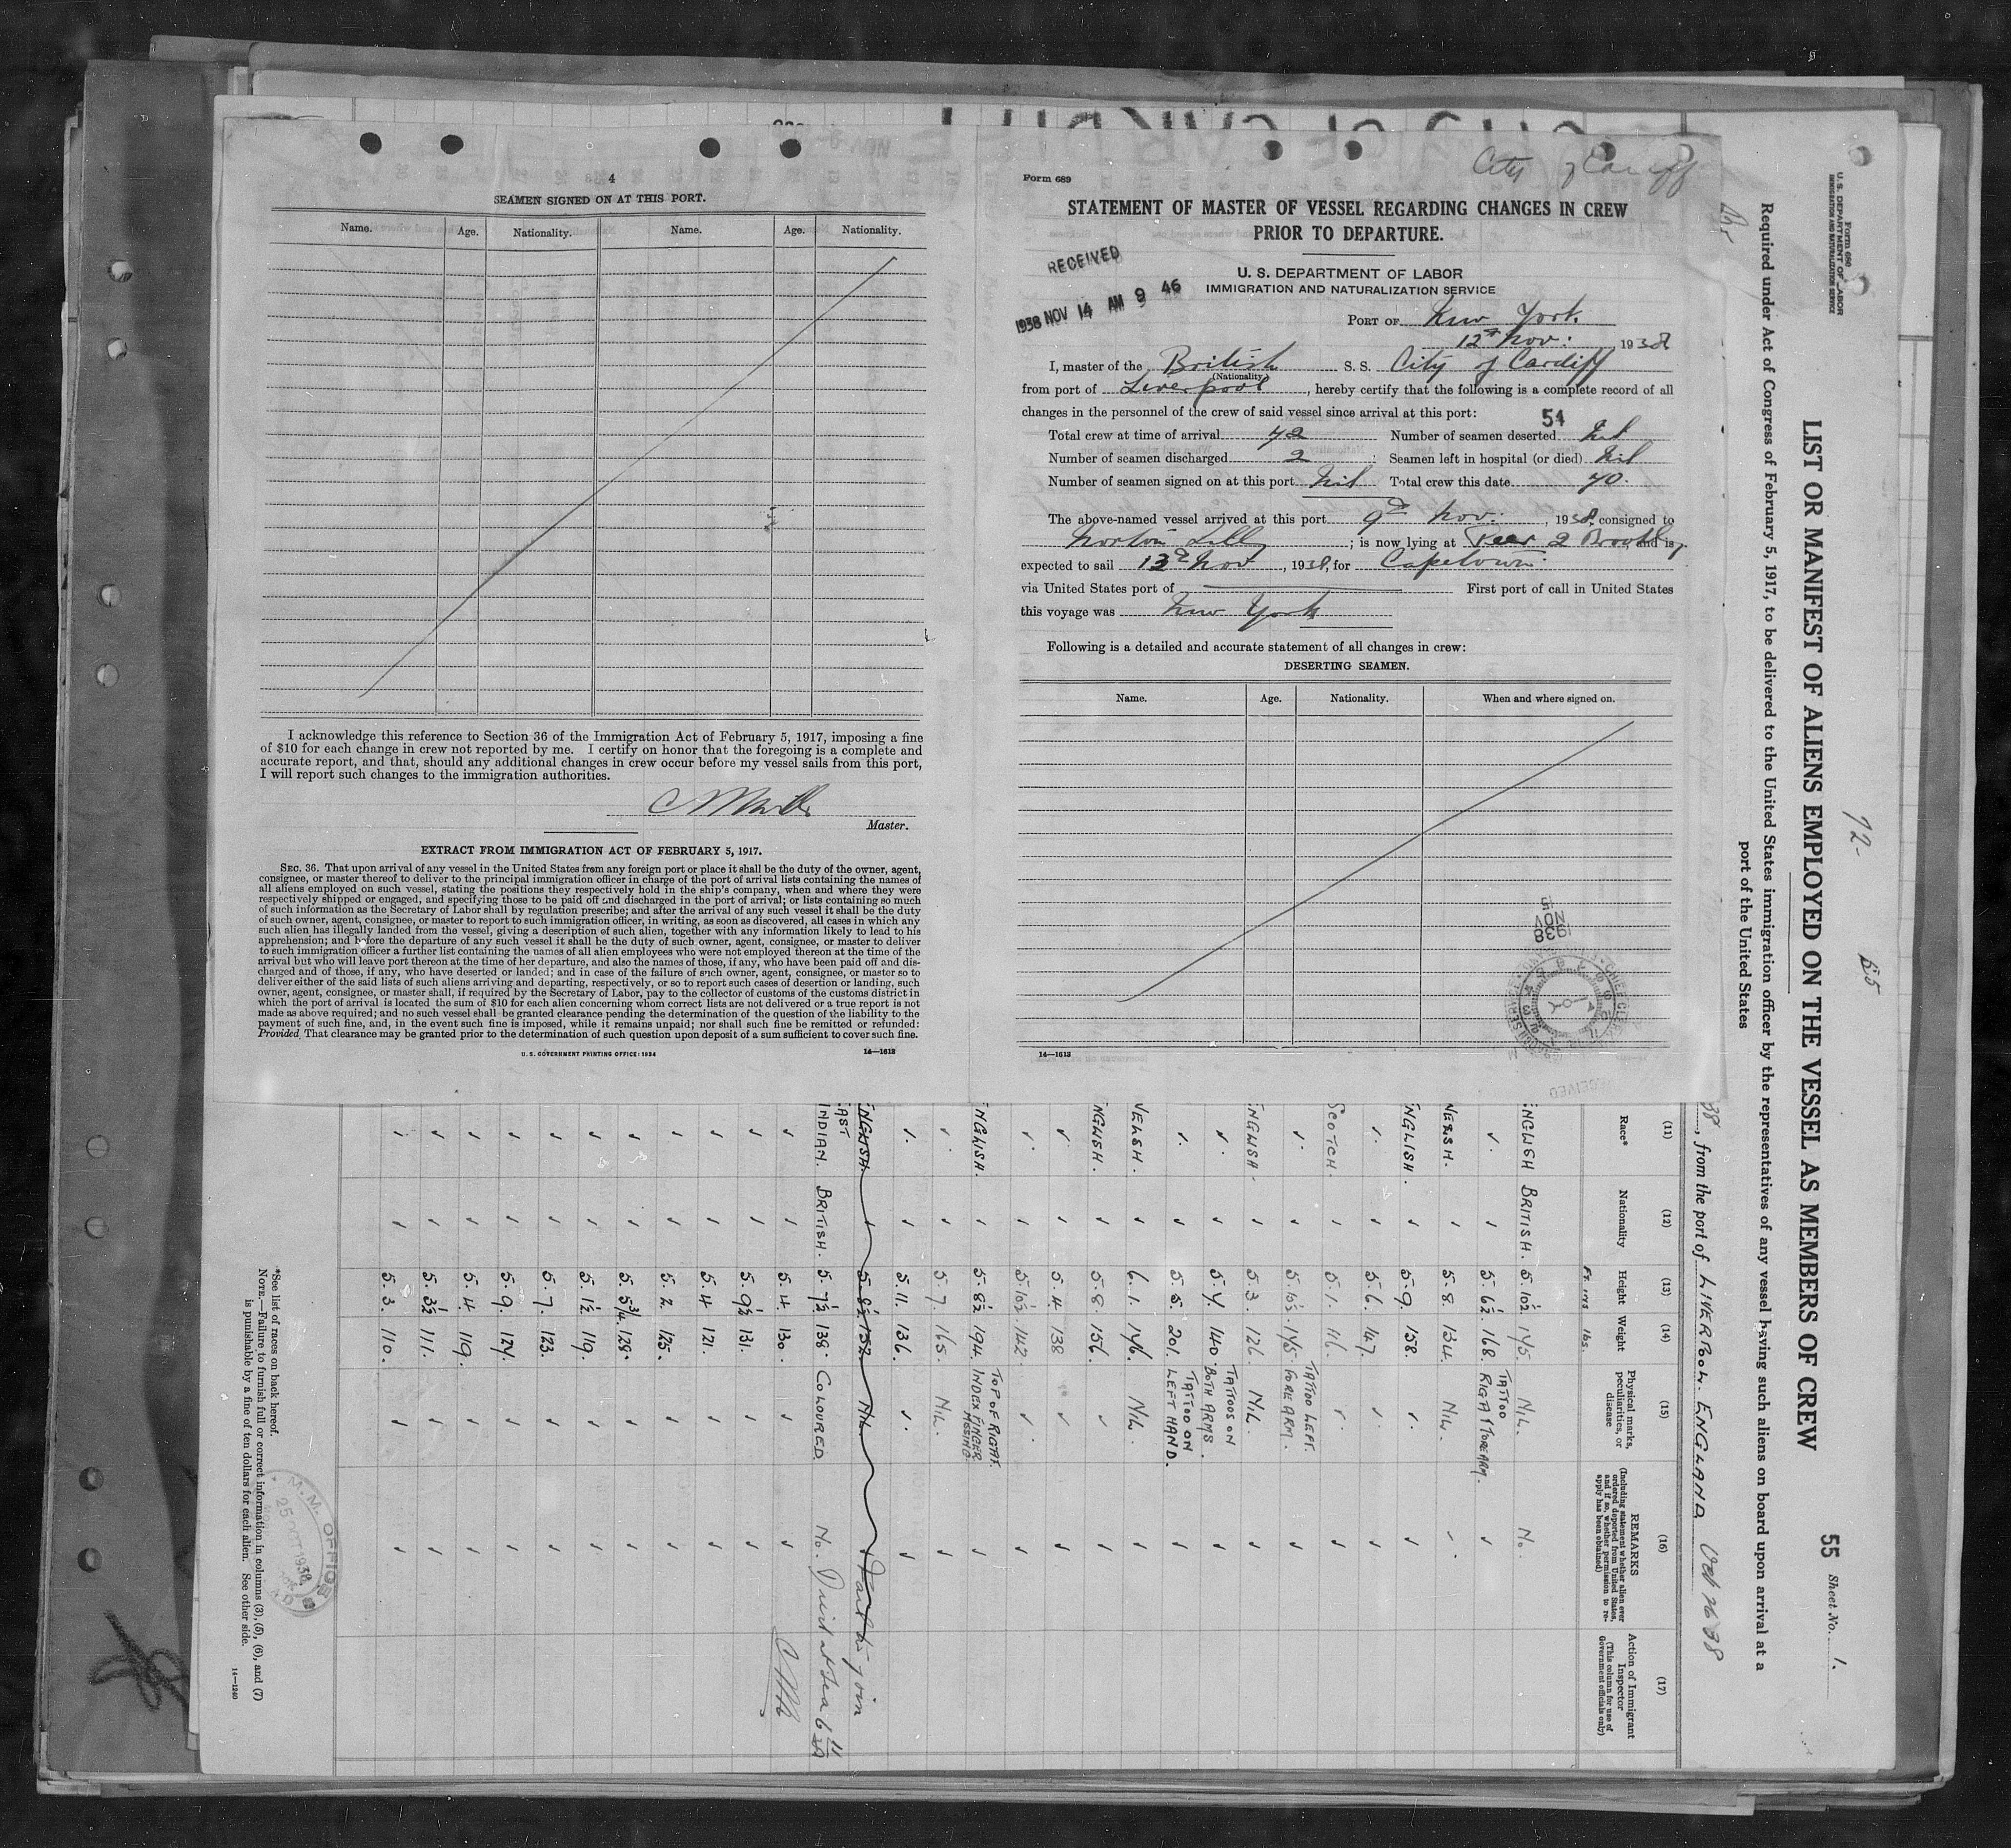 4
SEAMEN SIGNED ON AT THIS PORT.
Name. Age. Nationality. Name. Age. Nationality.
I acknowledge this reference to Section 36 of the Immigration Act of February 5, 1917, imposing a fine
of $10 for each change in crew not reported by me. I certify on honor that the foregoing is a complete and
accurate report, and that, should any additional changes in crew occur before my vessel sails from this port,
I will report such changes to the immigration authorities.
Master.
EXTRACT FROM IMMIGRATION ACT OF FEBRUARY 5, 1917.
SEC. 36. That upon arrival of any vessel in the United States from any foreign port or place it shall be the duty of the owner, agent,
consignee, or master thereof to deliver to the principal immigration officer in charge of the port of arrival lists containing the names of
all aliens employed on such vessel, stating the positions they respectively hold in the ship's company, when and where they were
respectively shipped or engaged, and specifying those to be paid off and discharged in the port of arrival; or lists containing so much
of such information as the Secretary of Labor shall by regulation prescribe; and after the arrival of any such vessel it shall be the duty
of such owner, agent, consignee, or master to report to such immigration officer, in writing, as soon as discovered, all cases in which any
such alien has illegally landed from the vessel, giving a description of such alien, together with any information likely to lead to his
apprehension; and before the departure of any such vessel it shall be the duty of such owner, agent, consignee, or master to deliver
to such immigration officer a further list containing the names of all alien employees who were not employed thereon at the time of the
arrival but who will leave port thereon at the time of her departure, and also the names of those, if any, who have been paid off and dis-
charged and of those, if any, who have deserted or landed; and in case of the failure of such owner, agent, consignee, or master so to
deliver either of the said lists of such aliens arriving and departing, respectively, or so to report such cases of desertion or landing, such
owner, agent, consignee, or master shall, if required by the Secretary of Labor, pay to the collector of customs of the customs district in
which the port of arrival is located the sum of $10 for each alien concerning whom correct lists are not delivered or a true report is not
made as above required; and no such vessel shall be granted clearance pending the determination of the question of the liability to the
payment of such fine, and, in the event such fine is imposed, while it remains unpaid; nor shall such fine be remitted or refunded:
Provided, That clearance may be granted prior to the determination of such question upon deposit of a sum sufficient to cover such fine.
U. S. GOVERNMENT PRINTING OFFICE: 1934 14—1613
City of Cardiff
Form 689
STATEMENT OF MASTER OF VESSEL REGARDING CHANGES IN CREW
PRIOR TO DEPARTURE.
RECEIVED
1938 NOV 14 AM 9 46
U. S. DEPARTMENT OF LABOR
IMMIGRATION AND NATURALIZATION SERVICE
PORT OF New York.
12th Nov: , 1938
I, master of the British S. S. City of Cardiff
(Nationality)
from port of Liverpool, hereby certify that the following is a complete record of all
changes in the personnel of the crew of said vessel since arrival at this port:
54
Total crew at time of arrival 72 Number of seamen deserted Nil
Number of seamen discharged 2 Seamen left in hospital (or died) Nil
Number of seamen signed on at this port Nil Total crew this date 70.
The above-named vessel arrived at this port 9th Nov: , 1938, consigned to
Norton Lilly ; is now lying at Pier 2 Brooklyn, and is
expected to sail 13th Nov , 1938, for Capetown.
via United States port of First port of call in United States
this voyage was New York
Following is a detailed and accurate statement of all changes in crew:
DESERTING SEAMEN.
Name. Age. Nationality. When and where signed on.
NOV 15 1938
14—1613
Form 680
U. S. DEPARTMENT OF LABOR
IMMIGRATION AND NATURALIZATION SERVICE
72-
55 Sheet No. 1.
LIST OR MANIFEST OF ALIENS EMPLOYED ON THE VESSEL AS MEMBERS OF CREW
Required under Act of Congress of February 5, 1917, to be delivered to the United States immigration officer by the representatives of any vessel having such aliens on board upon arrival at a
port of the United States
38, from the port of LIVERPOOL. ENGLAND Oct 26 38
(11) (12) (13) (14) (15) (16) (17)
Race* Nationality Height Weight Physical marks, peculiarities, or disease REMARKS (Including statement whether alien ever ordered deported from United States, and if so, whether permission to re-apply has been obtained) Action of Immigrant Inspector (This column for use of Government officials only)
FT. INS LBS.
ENGLISH BRITISH. 5.10½ 145. NIL. No.
✓ ✓ 5.6½ 168. TATTOO RIGHT FOREARM. ✓
WELSH. ✓ 5.8. 134. NIL. ✓
ENGLISH. ✓ 5.9. 158. ✓ ✓
✓ ✓ 5.6. 147. ✓ ✓
SCOTCH. ✓ 5.1. 116. ✓ ✓
✓ ✓ 5.10½ 145. TATTOO LEFT FOREARM. ✓
ENGLISH. ✓ 5.3. 126. NIL. ✓
✓ ✓ 5.4. 140. TATTOOS ON BOTH ARMS. ✓
✓ ✓ 5.5. 201. TATTOO ON LEFT HAND. ✓
WELSH. ✓ 6.1. 146. NIL. ✓
ENGLISH. ✓ 5.8. 156. ✓ ✓
✓ ✓ 5.4. 138 ✓ ✓
✓ ✓ 5.10½ 142. ✓ ✓
ENGLISH. ✓ 5.8½ 194. TOP OF RIGHT INDEX FINGER MISSING ✓
✓ ✓ 5.7. 165. NIL. ✓
✓ ✓ 5.11. 136. ✓ ✓
ENGLISH ✓ 5.8½ 152. NIL Failed to join
EAST INDIAN. BRITISH. 5.7½ 138. COLOURED No. Died at Sea 6/11/38
✓ ✓ 5.4. 130. ✓ ✓
✓ ✓ 5.9½ 131. ✓ ✓
✓ ✓ 5.4 121. ✓ ✓
✓ ✓ 5.2. 125. ✓ ✓
✓ ✓ 5.5¾ 128. ✓ ✓
✓ ✓ 5.1½ 119. ✓ ✓
✓ ✓ 5.7. 123. ✓ ✓
✓ ✓ 5.9. 124. ✓ ✓
✓ ✓ 5.4. 119. ✓ ✓
✓ ✓ 5.3½ 111. ✓ ✓
✓ ✓ 5.3. 110. ✓ ✓
*See list of races on back hereof.
NOTE.—Failure to furnish full or correct information in columns (3), (5), (6), and (7)
is punishable by a fine of ten dollars for each alien. See other side.
14—1240
M.M. OFFICE
25 OCT 1938